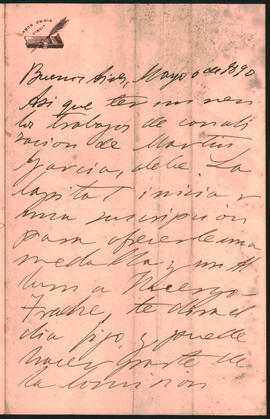 LABOR OMNIA
VINCIT
Buenos Aires, Mayo 6 de 1890
Asi que terminen
los trabajos de canali
zacion de Martin
Garcia, debe La
Capital iniciar
una suscripcion
para ofrecerle una
medalla y un Al
bum a
te dira el
dia fijo, y puede
hacer parte de
la comision